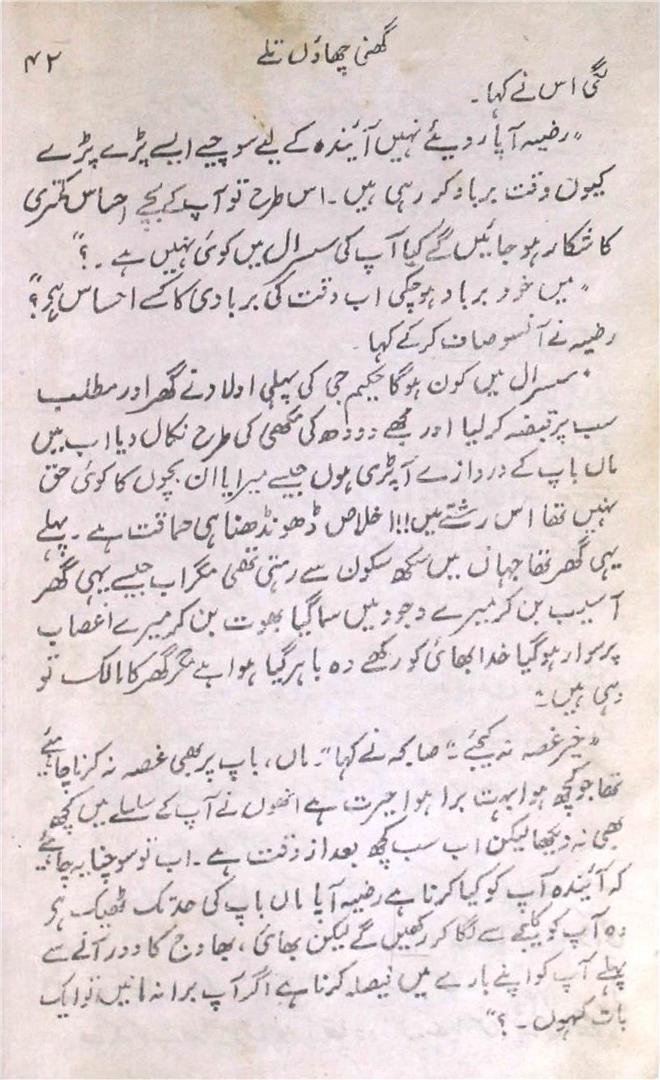 گھنی چھاؤں تلے
۴۲
گئی اس نے کہا۔
"رضیہ آپا روئیے نہیں آئیندہ کے لیے سوچیے ایسے پڑے پڑے
کیوں وقت برباد کر رہی ہیں۔ اس طرح تو آپ کے بچے احساس کمتری
کا شکار ہو جائیں گے کیا آپ کی سسرال میں کوئی نہیں ہے۔؟"
"میں خود برباد ہو چکی اب وقت کی بربادی کا کسے احساس ہے؟"
رضیہ نے آنسو صاف کر کے کہا۔
"سسرال میں کون ہوگا حکیم جی کی پہلی اولاد نے گھر اور مطلب
سب پر قبضہ کر لیا اور مجھے دودھ کی مکھی کی طرح نکال دیا اب میں
ماں باپ کے دروازے آپڑی ہوں جیسے میرا یا ان بچوں کا کوئی حق
نہیں تھا اس رشتے میں!!! اخلاص ڈھونڈھنا ہی حماقت ہے۔ پہلے
یہی گھر تھا جہاں میں سکھ سکون سے رہتی تھی مگر اب جیسے یہی گھر
آسیب بن کر میرے وجود میں سما گیا بھوت بن کر میرے اعصاب
پر سوار ہو گیا خدا بھائی کو رکھے وہ باہر گیا ہوا ہے مگر گھر کا مالک تو
وہی ہیں۔"
"خیر غصہ نہ کیجئے۔" صابحہ نے کہا "ماں، باپ پر بھی غصہ نہ کرنا چاہئے
تھا جو کچھ ہوا بہت برا ہوا حیرت ہے انھوں نے آپ کے سلسلے میں کچھ
بھی نہ دیکھا لیکن اب سب کچھ بعد از وقت ہے۔ اب تو سوچنا یہ چاہئے
کہ آئیندہ آپ کو کیا کرنا ہے رضیہ آپا ماں باپ کی حد تک ٹھیک ہے
وہ آپ کو کلیجے سے لگا کر رکھیں گے لیکن بھائی، بھاوج کا دور آنے سے
پہلے آپ کو اپنے بارے میں فیصلہ کرنا ہے اگر آپ برا نہ مانیں تو ایک
بات کہوں۔؟"